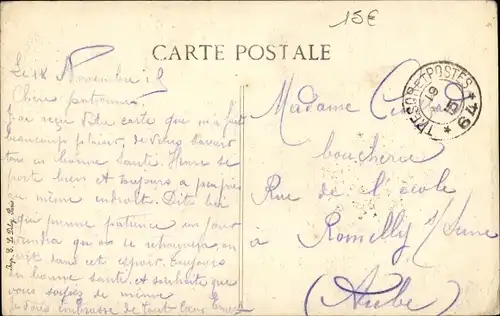 15€
CARTE POSTALE
TRESOR ET POSTES
* 94 *
Le 18 Novembre 15
Chère
J'ai reçu Votre carte que m'a fait
beaucoup plaisir, de vous savoir
tous en bonne Santé.
porte bien et toujours a peu près
au même endroit. Dite lui
qui prenne patience un jour
viendra qu'on se retrouvera, on
vit dans cet espoir. Toujours
en bonne santé, et souhaite que
vous soyez de même
Je vous embrasse de tout Cœur
Madame
boucherie
Rue de l'école
à Romilly s/Seine
(Aube)